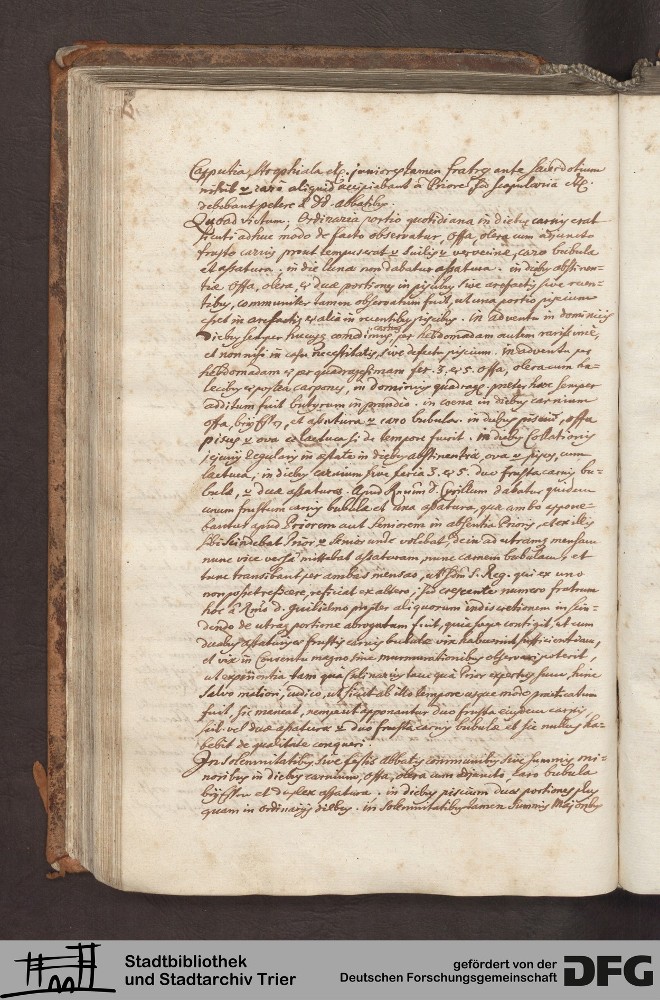 Caputia, Strophiala etc. juniores tamen fratres ante sacerdotium
nihil vel rarò aliquid accipiebant à Priore sed scapularia etc.
debebant petere à DD abbatibus.
Quoad victum. Ordinaria portio quotidiana in diebus carnis erat
sicuti adhuc modo de facto observatur, offa, olera cum adjuncto
frusto carnis prout tempus erat vel suillis vel verveinis, caro bubula
et assatura. in die lunae non dabatur assatura. in diebus abstinen=
tiae offa, olera, et duae portiones in piscibus sive arefactis sive recen=
tibus, communiter tamen observatum fuit, ut una portio piscium
esset in arefactis et alia in recentibus piscibus. in adventu in dominicis
diebus semper huius condimus carnes per hebdomadam autem rarissimè,
et non nisi in casu necessitatis, sive defectu piscium. in adventu per
hebdomadam et per quadragesimam fer. 3. et 5. offa, olera cum ha=
lecibus et postea carpones, in dominicis quadrages. praeter haec semper
additum fuit butyrum in prandio. in coena in diebus carnium
offa, et assatura vel caro bubula. in diebus piscium, offa
pisces vel ova et lactuca si de tempore fuerit. in diebus Collationis
jejunij Regularis in aestate in diebus abstinentiae, ova vel pisces, cum
lactuca, in diebus carnium sive feria 3. et 5. duo frusta carnis bu=
bulae, vel duae assaturae. Apud Rmum D. Cyrillum dabatur quidem
unum frustum carnis bubulae et una assatura, quae ambo appone=
bantur apud Priorem aut Seniorem in absentia Prioris, et ex illis
sibi scindebat Prior vel Senior unde volebat, dein ad utramque mensam
nunc vice versâ mittebat assaturam, nunc carnem bubulam, et
tunc transibant per ambas mensas, ut S. Reg. qui ex uno
non posset reficere, reficeat ex altero; sed crescente numero fratrum
hoc à Rmo D. Guilielmo propter aliquorum indiscretionem in scin=
dendo de utraque portione abrogatum fuit, quia saepe contigit, ut cum
duabus assaturis et frustis carnis bubulae vix habuerint sufficientiam,
et vix in Conventu magno sine murmurationibus observari poterit,
ut experientia tam qua Culinarius tam quà Prior expertus sum, hinc
salvo meliori, iudico, ut sicut ab illo tempore usque modo practicatum
fuit, sic maneat, nempe ut apponantur duo frusta eiusdem carnis
scil. vel duae assaturae vel duo frusta carnis bubulae et sic nullus ha=
bebit de qualitate conqueri.
In solemnitatibus sive festis abbatis communibus sive summis mi=
noribus in diebus carnium, offa, olera cum adjuncto, caro bubula
et duplex assatura. in diebus piscium duas portiones plus
quam in ordinarijs diebus. in solemnitatibus tamen summis Majoribus
Stadtbibliothek
und Stadtarchiv Trier
gefördert von der
Deutschen Forschungsgemeinschaft
DFG